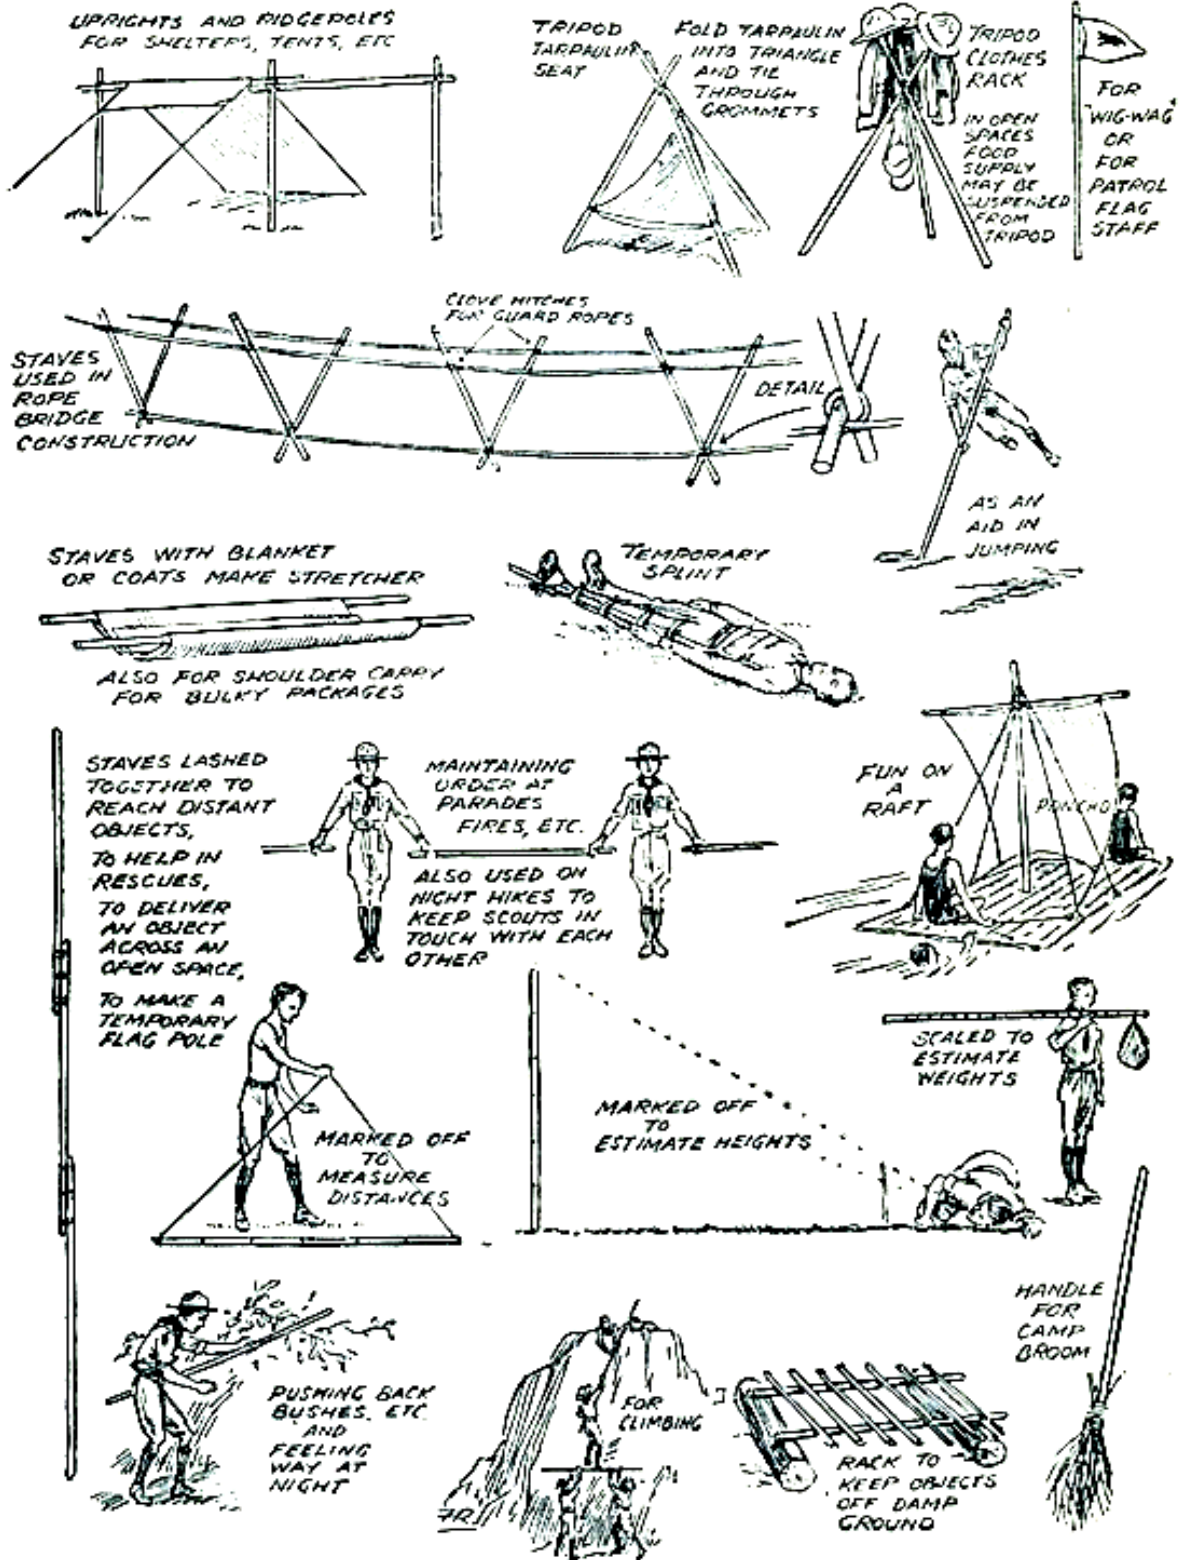 UPRIGHTS AND RIDGEPOLES
FOR SHELTERS, TENTS, ETC
TRIPOD
TARPAULIN
SEAT
FOLD TARPAULIN
INTO TRIANGLE
AND TIE
THROUGH
GROMMETS
TRIPOD
CLOTHES
RACK
IN OPEN
SPACES
FOOD
SUPPLY
MAY BE
SUSPENDED
FROM
TRIPOD
FOR
"WIG-WAG"
OR
FOR
PATROL
FLAG
STAFF
STAVES
USED IN
ROPE
BRIDGE
CONSTRUCTION
CLOVE HITCHES
FOR GUARD ROPES
DETAIL
AS AN
AID IN
JUMPING
STAVES WITH BLANKET
OR COATS MAKE STRETCHER
ALSO FOR SHOULDER CARRY
FOR BULKY PACKAGES
TEMPORARY
SPLINT
STAVES LASHED
TOGETHER TO
REACH DISTANT
OBJECTS,
TO HELP IN
RESCUES,
TO DELIVER
AN OBJECT
ACROSS AN
OPEN SPACE,
TO MAKE A
TEMPORARY
FLAG POLE
MAINTAINING
ORDER AT
PARADES
FIRES, ETC.
ALSO USED ON
NIGHT HIKES TO
KEEP SCOUTS IN
TOUCH WITH EACH
OTHER
FUN ON
A
RAFT
PONCHO
MARKED OFF
TO
MEASURE
DISTANCES
MARKED OFF
TO
ESTIMATE HEIGHTS
SCALED TO
ESTIMATE
WEIGHTS
PUSHING BACK
BUSHES, ETC.
AND
FEELING
WAY AT
NIGHT
FOR
CLIMBING
RACK TO
KEEP OBJECTS
OFF DAMP
GROUND
HANDLE
FOR
CAMP
BROOM